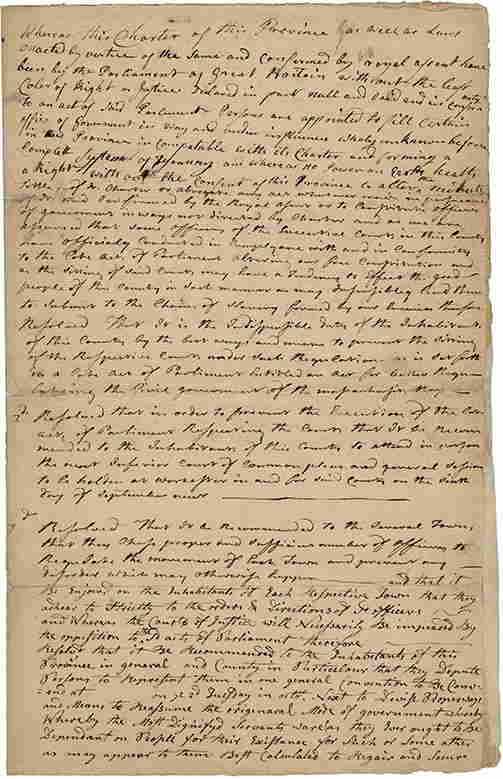 Whereas the Charter of this Province as well as Laws
enacted by vertue of the Same and confirmed by royal assent have
been by the Parliament of Great Britain without the least
Color of Right or Justice Declared in part null and void and in
to an act of said Parliament Persons are appointed to fill certain
offices of Government in ways and under influences wholy unknown before
in this Province incompatable with its Charter and forming a
Complete System of Tyranny and whereas no Power on Earth hath
a Right without the Consent of this Province to alter the minutest
title of its Charter or abrogate any act whatever made in
of it and Confirmed by the Royal assent or to Constitute officers
of government in ways not directed by Charter and as we are
assured that some officers of the Executive Courts in this County
have officially Conducted in complyance with and in Conformity
to the late Acts of Parliament altering our free Constitution and
as the sitting of said Courts may have a tendency to affect the good
people of this County in such manner as may insensibly lead them
to submit to the Chains of Slavery forged by our Enemies therefore
Resolved That it is the Indispensible duty of the Inhabitants
of this County by the best ways and means to prevent the sitting
of the Respective Courts under such Regulations as is set forth
in a late act of Parliament Intitled an Act for better Regu-
lating the Civil government of the massachusetts Bay
2d Resolved that in order to prevent the Execution of the late
act of Parliament Respecting the Courts that it be Recom
mended to the Inhabitants of this County to attend in person
the next Inferior court of Common pleas and general Sessions
to be holden at worcester in and for said County on the sixth
day of September next
Resolved That it be Recommended to the Several Towns
that they Chuse proper and Sufficient number of Officers to
Regulate the movement of Each Town and prevent any
disorder which may otherwise happen and that it
be enjoined on the Inhabitants of Each Respective Town that they
adheer to Strictly to the orders & Directions of its officers
and Whereas the Courts of Justice will Nicesarily be impeeded by
the opposition to said acts of Parliament therefore
Resolve that it be Recommended to the Inhabitants of this
Province in general and County in Particular that they Depute
Persons to Represent them in one general Convention to be Conve-
and at on ye 2d Tuesday in octbr Next to Devise
and Means to Reassume the original Mode of government whereby
Whereby the Most Dignified Servants were as they Ever ought to be
Dependant on People for their Existance for Such or Some other
as may appear to them Best Calculated to Regain and Secure